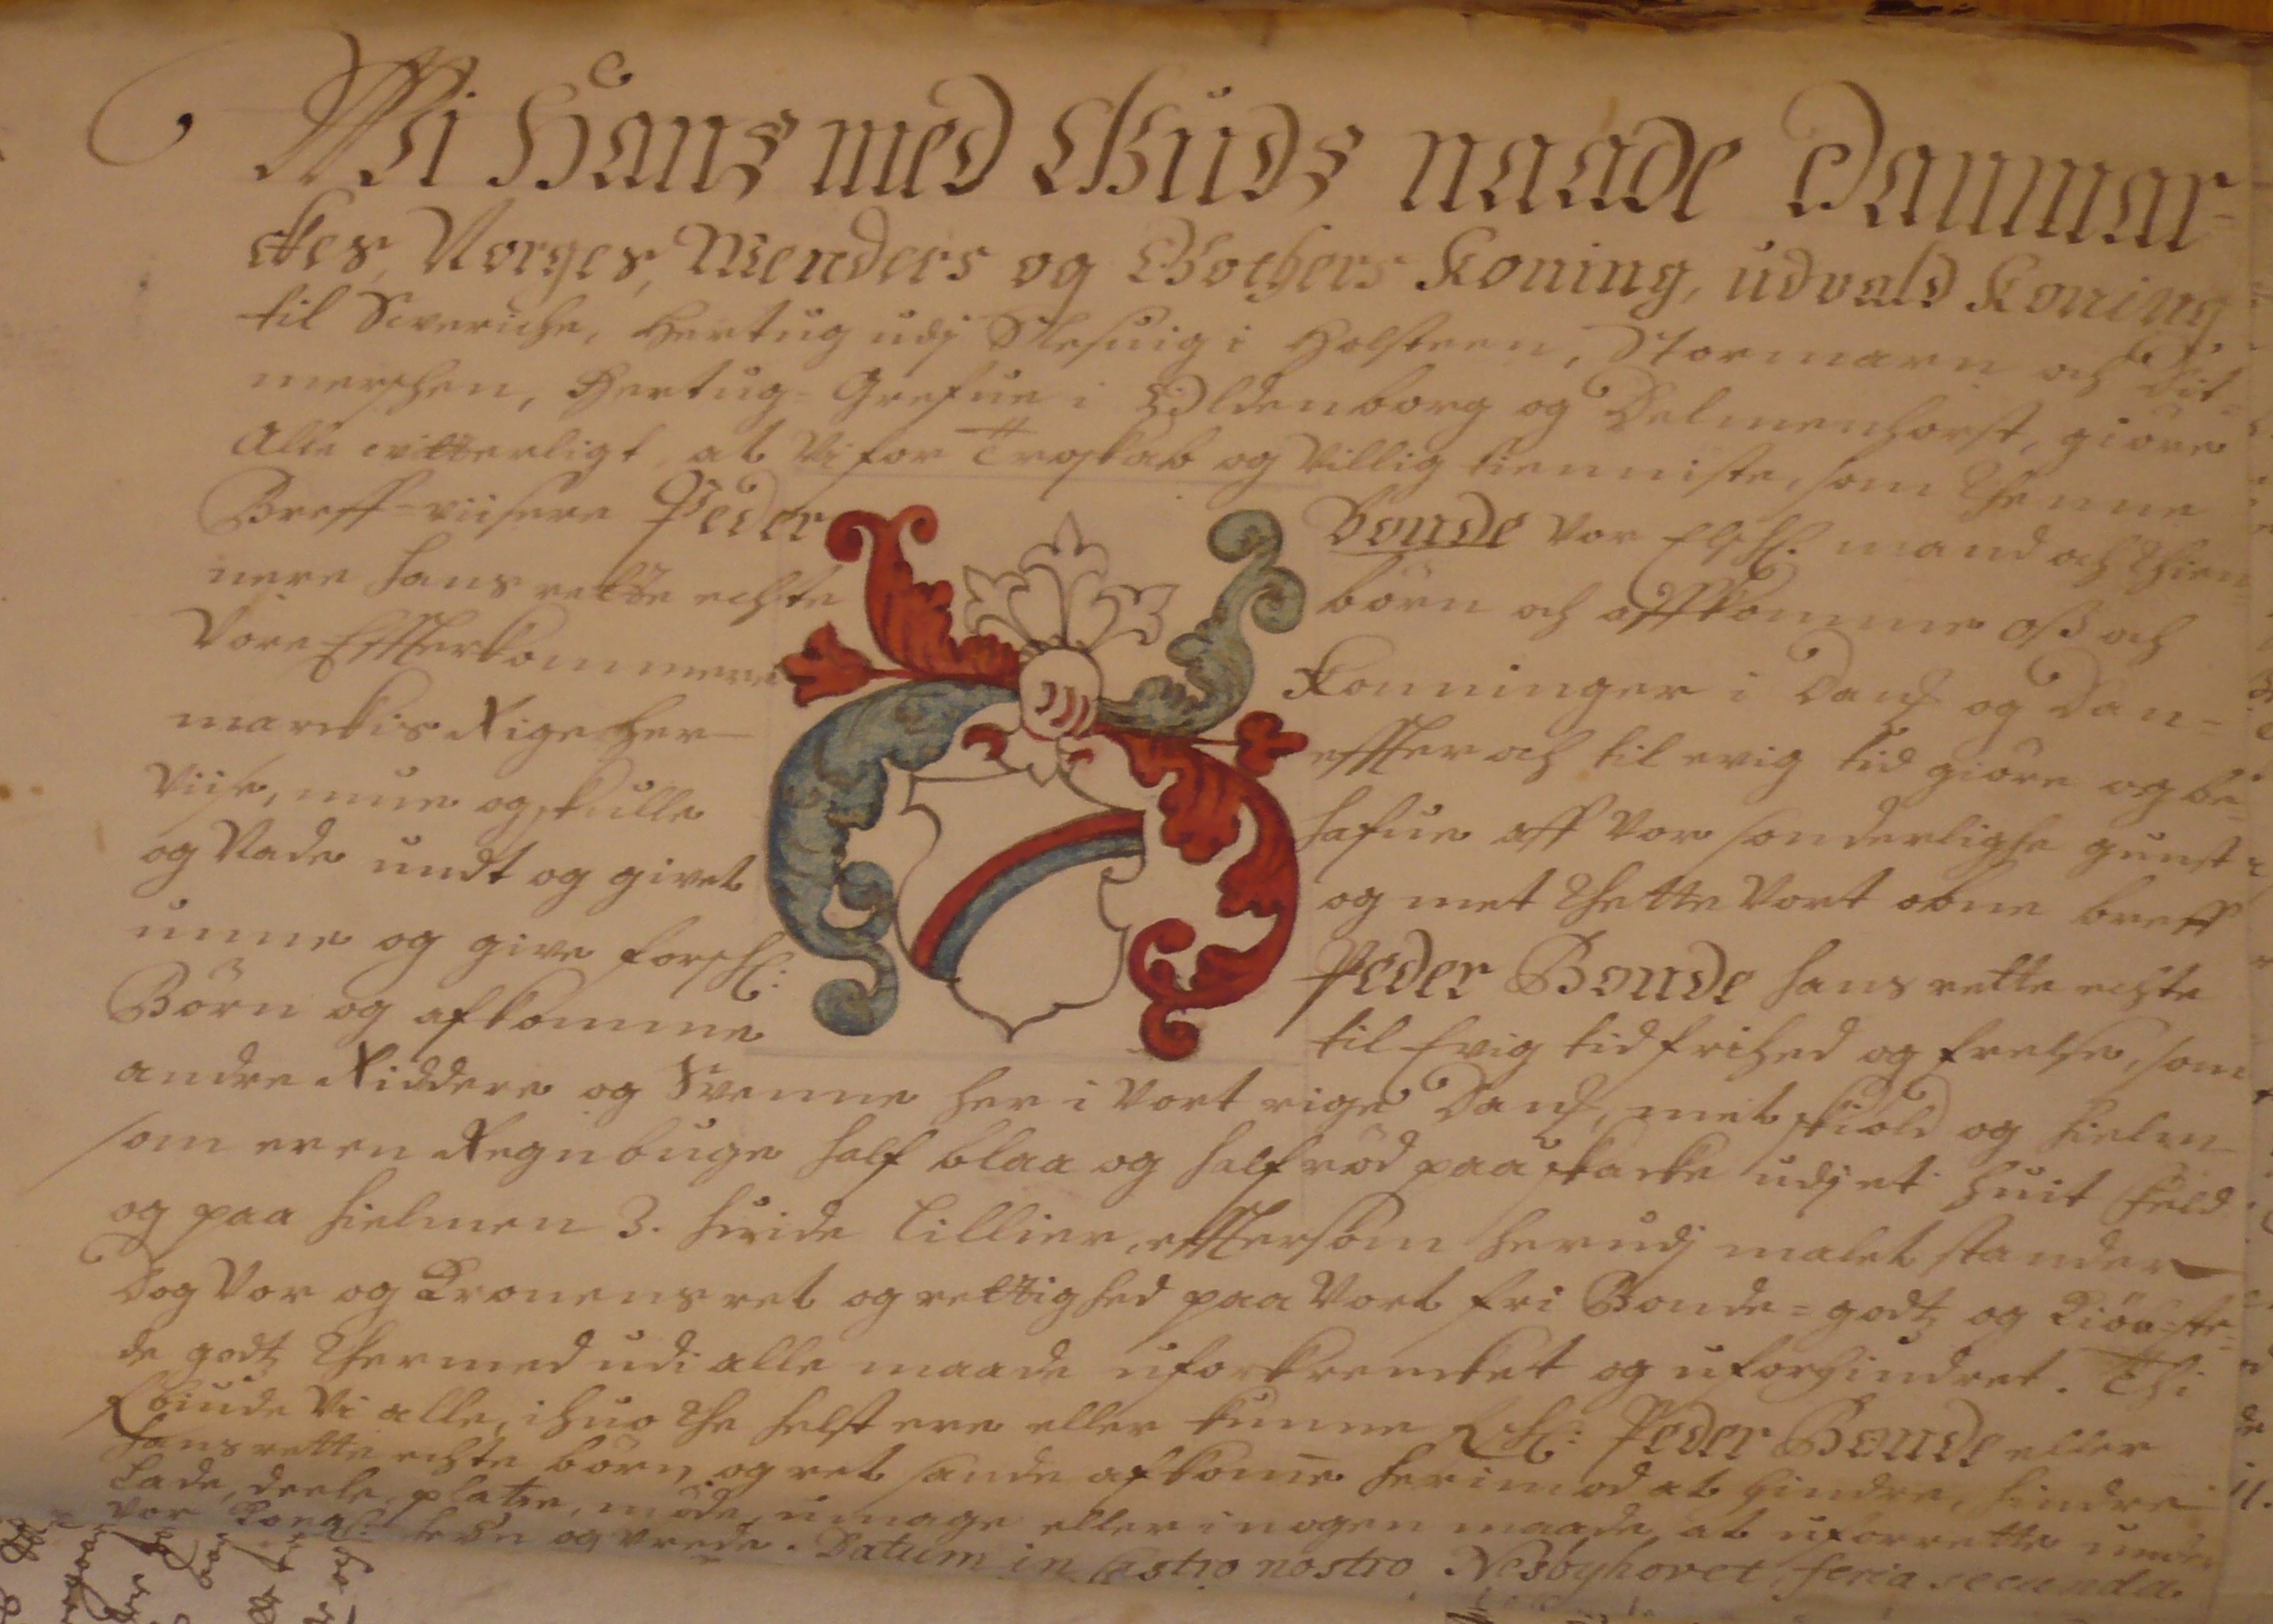 Wi Hans med Guds naade Danmar-
ckes, Norges, Wenders og Gothers Koning, udvald Koning
til Sverriche, Hertug udj Slesuig i Holsteen, Stormarn och Dit-
merschen, Hertug-Grefue i Oldenborg og Delmenhorst, giöre
Alle witterligt, at Vi for Troskab og Villig tienniste, som Thenne
Breff-viisere Peder Bonde Vor Elsk. mand och Thien-
nere hans rette echte börn och affkomme oss och
Vore Effterkommere Konninger i Danf og Dan-
marckis Rige her- effter och til evig tid giöre og be-
viise, mue og skulle hafue aff Vor sonderlighe gunst
og Nade undt og givet og met Thette Vort obne breff
unne og give forsk: Peder Bonde hans rette echte
Börn og afkomme til Evig tid frihed og frelse, som
andre Riddere og Svenne her i Vort rige Danf, met skiold og hielm
som er en Regnbuge half blaa og half röd paa skacke udj et huit feld
og paa hielmen 3. hvide Lillier, efftersom herudj malet stander
Dog Vor og Kronens ret og rettighed paa Vort fri Bonde-godtz og Kiöbste-
de godtz Thermed udi alle maade uforkrencket og uforhindret. Thi
forbiude Vi alle, i huo The helst ere eller kunne Peder Bonde eller
hans rette echte börn og ret sande afkome herimod at hindre, hindre
lade, deele, platze, möde, umage eller i nogen maade at uforrette under
vor Kongl: hefn og vrede. Datum in Castro nostro Nesbyhovet feria secunda